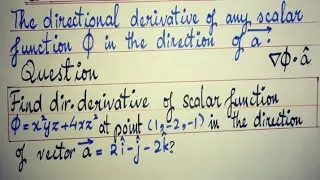 The directional derivative of any scalar
function ϕ in the direction of a⃗ :
∇ϕ·â
Question
Find dir. derivative of scalar function
ϕ = x²yz + 4xz² at point (1, -2, -1) in the direction
of vector a⃗ = 2î - ĵ - 2k̂ ?